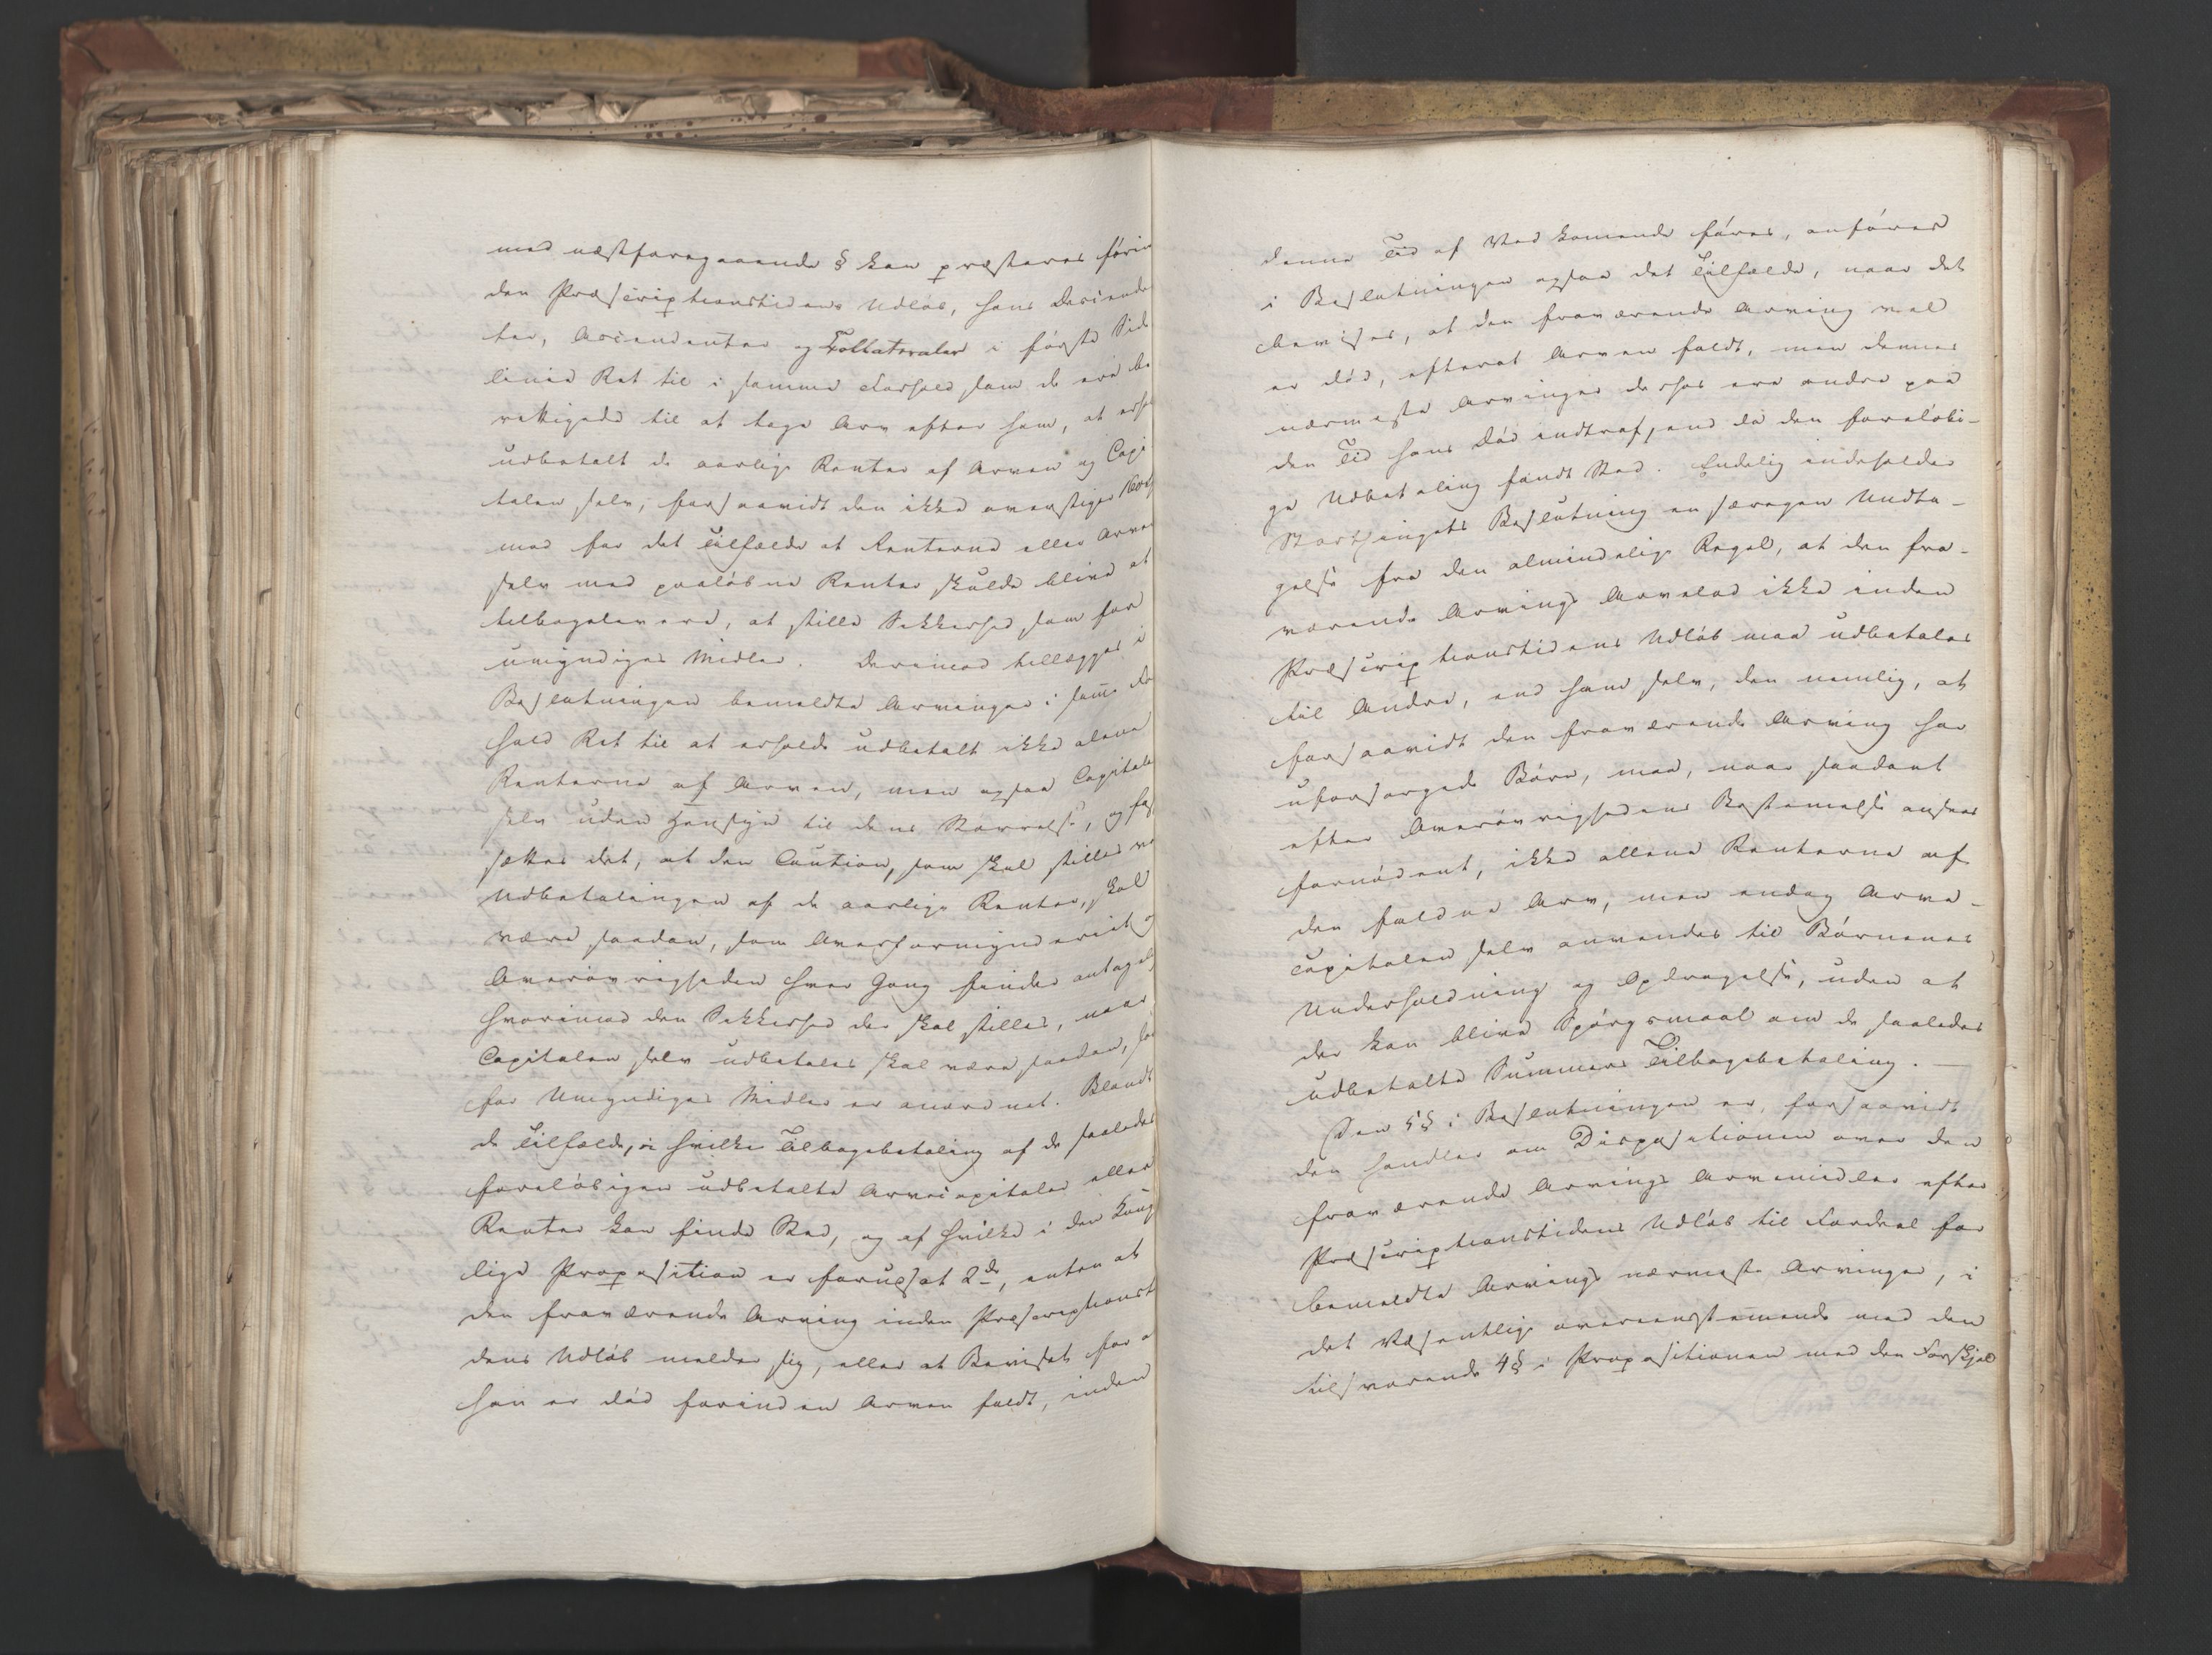 med næstforegaaende § kan præsteres förin
den Præscriptionstidens Udløb, hans Descenden
ter, Ascendenter og Collateraler i første Side
linie Ret til i samme Forhold som de ere be
rettigede til at tage Arv efter ham, at erhol
udbetalt de aarlige Renter af Arven og Capi
talen selv, forsaavidt den ikke overstiger
mod for det Tilfælde at Renterne eller Arve
selv med paaløbne Renter skulde blive at
tilbagelevere, at stille Sikkerhed som for
umyndiges Midler. Derimod tillægges i
Beslutningen bemeldte Arvinger i samme For
hold Ret til at erholde udbetalt ikke alene
Renterne af Arven, men ogsaa Capitale
selv uden Hensyn til dens Størrelse, og fast
sættes det, at den Caution, som skal stilles ve
Udbetalingen af de aarlige Renter, skal
være saadan, som Overformynderiet og
Overøvrigheden hver Gang finder antagel
hvorimod den Sikkerhed der skal stilles, naar
Capitalen selv udbetales skal være saadan, so
for Umyndiges Midler er anordnet. Blandt
de Tilfælde, i hvilke Tilbagebetaling af de saaledes
foreløbigen udbetalte Arvecapitaler eller
Renter kan finde Sted, og af hvilke i den Kong
lige Proposition er forudsat 2de, enten at
den fraværende Arving inden Præscriptionsti
dens Udløb melder sig, eller at Beviset for a
han er død forinden Arven faldt, inden
denne Tid af Vedkommende føres, anføres
i Beslutningen ogsaa det Tilfælde, naar det
bevises, at den fraværende Arving vel
er død, efterat Arven faldt, men dennes
nærmeste Arvinger derhos ere andre paa
den Tid hans Død indtraf, end da den foreløbi-
ge Udbetaling fandt Sted. Endelig indeholder
Storthingets Beslutning en særegen Undta-
gelse fra den almindelige Regel, at den fra-
værende Arvings Arvelod ikke inden
Præscriptionstidens Udløb maa udbetales
til Andre, end ham selv, den nemlig, at
forsaavidt den fraværende Arving har
uforsørgede Børn, maa, naar saadant
efter Overøvrighedens Bestemmelse ansees
fornødent, ikke allene Renterne af
den faldne Arv, men endog Arve-
capitalen selv anvendes til Børnenes
Underholdning og Opdragelse, uden at
der kan blive Spørgsmaal om de saaledes
udbetalte Summers Tilbagebetaling. —
Den 5§ i Beslutningen er, forsaavidt
den handler om Dispositionen over den
fraværende Arvings Arvemidler efter
Præscriptionstidens Udløb til Fordeel for
bemeldte Arvings nærmeste Arvinger, i
det Væsentlige overeensstemmende med den
tilsvarende 4§ i Propositionen med den Forskjel